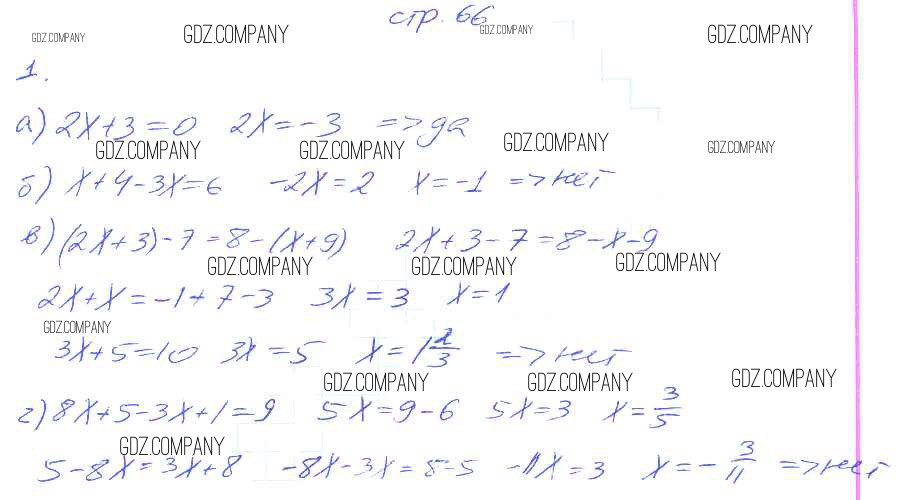 стр. 66
GDZ.COMPANY GDZ.COMPANY GDZ.COMPANY GDZ.COMPANY
1.
а) 2x+3=0 2x=-3 => да
GDZ.COMPANY GDZ.COMPANY GDZ.COMPANY GDZ.COMPANY
б) x+4-3x=6 -2x=2 x=-1 => нет
в) (2x+3)-7=8-(x+9) 2x+3-7=8-x-9
GDZ.COMPANY GDZ.COMPANY GDZ.COMPANY
2x+x=-1+7-3 3x=3 x=1
GDZ.COMPANY
3x+5=10 3x=5 x=1 2/3 => нет
GDZ.COMPANY GDZ.COMPANY GDZ.COMPANY
г) 8x+5-3x+1=9 5x=9-6 5x=3 x=3/5
GDZ.COMPANY
5-8x=3x+8 -8x-3x=8-5 -11x=3 x=-3/11 => нет